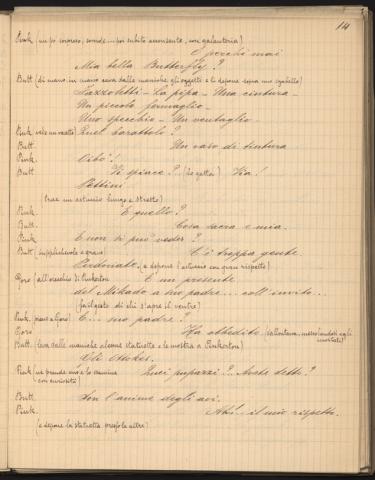 14
Pink (un po' sorpreso, sorride - poi subito acconsente, con galanteria)
E perchè mai
Mia bella Butterfly?
Butt (di mano in mano cava dalle maniche gli oggetti e li depone sopra uno sgabello)
Fazzoletti - La pipa - Una cintura -
Un piccolo fermaglio -
Uno specchio - Un ventaglio.
Pink vede un vasetto) Quel barattolo?
Butt. Un vaso di tintura
Pink. Ohibò!
Butt Vi spiace? (lo getta) Via!
Pettini
(trae un astuccio lungo e stretto)
Pink. E quello?
Butt. Cosa sacra e mia.
Pink E non si può veder?
Butt (supplichevole e grave) C'è troppa gente.
Perdonate. (e depone l'astuccio con gran rispetto)
Goro (all'orecchio di Pinkerton) È un presente
del Mikado a suo padre... coll'invito...
(fa il gesto di chi s'apre il ventre)
Pink. (piano a Goro) E... suo padre?
Goro Ha obbedito (s'allontana, mescolandosi agli invitati)
Butt. (leva dalle maniche alcune statuette e le mostra a Pinkerton)
Gli Ottokè.
Pink (ne prende una e la esamina con curiosità) Quei pupazzi?.. Avete detto?
Butt. Son l'anime degli avi.
Pink. Ah!.. il mio rispetto.
(e depone la statuetta presso le altre)